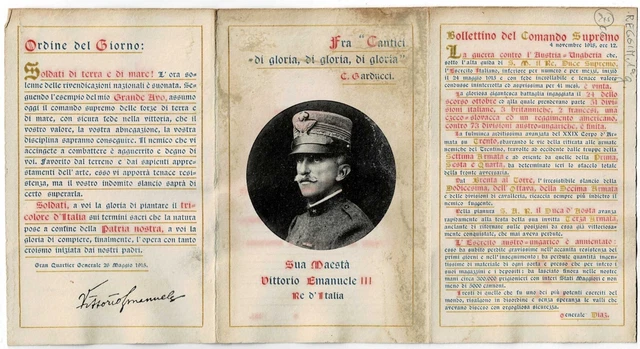 Ordine del Giorno:
Soldati di terra e di mare! L' ora so-
lenne delle rivendicazioni nazionali è suonata. Se-
guendo l'esempio del mio Grande Avo, assumo
oggi il comando supremo delle forze di terra e
di mare, con sicura fede nella vittoria, che il
vostro valore, la vostra abnegazione, la vostra
disciplina sapranno conseguire. Il nemico che vi
accingete a combattere è agguerrito e degno di
voi. Favorito dal terreno e dai sapienti appre-
stamenti dell' arte, esso vi apporrà tenace resi-
stenza, ma il vostro indomito slancio saprà di
certo superarla.
Soldati, a voi la gloria di piantare il tri-
colore d'Italia sui termini sacri che la natura
pose a confine della Patria nostra, a voi la
gloria di compiere, finalmente, l'opera con tanto
eroismo iniziata dai nostri padri.
Gran Quartier Generale 26 Maggio 1915.
Vittorio Emanuele
Fra "Cantici
di gloria, di gloria, di gloria"
C. Carducci.
Sua Maestà
Vittorio Emanuele III
Re d'Italia
Bollettino del Comando Supremo
4 novembre 1918, ore 12.
La guerra contro l'Austria-Ungheria che,
sotto l'alta guida di S. M. il Re, Duce Supremo,
l'Esercito Italiano, inferiore per numero e per mezzi, iniziò
il 24 maggio 1915 e con fede incrollabile e tenace valore
condusse ininterrotta ed asprissima per 41 mesi, è vinta.
La gigantesca battaglia ingaggiata il 24 dello
scorso ottobre ed alla quale prendevano parte 51 divi-
sioni italiane, 3 britanniche, 2 francesi, una
czeco-slovacca ed un reggimento americano,
contro 73 divisioni austro-ungariche, è finita.
La fulminea arditissima avanzata del XXIX Corpo d'Ar-
mata su Trento, sbarrando le vie della ritirata alle armate
nemiche del Trentino, travolte ad occidente dalle truppe della
Settima Armata e ad oriente da quelle della Prima,
Sesta e Quarta, ha determinato ieri lo sfacelo totale
della fronte avversaria.
Dal Brenta al Torre, l'irresistibile slancio della
Dodicesima, dell'Ottava, della Decima Armata
e delle divisioni di cavalleria, ricaccia sempre più indietro il
nemico fuggente.
Nella pianura S. A. R. il Duca d'Aosta avanza
rapidamente alla testa della sua invitta Terza Armata,
anelante di ritornare sulle posizioni da essa già vittoriosa-
mente conquistate, che mai aveva perdute.
L'Esercito austro-ungarico è annientato:
esso ha subito perdite gravissime nell'accanita resistenza dei
primi giorni e nell'inseguimento; ha perduto quantità ingen-
tissime di materiale di ogni sorta e pressochè per intero i
suoi magazzini e i depositi; ha lasciato finora nelle nostre
mani circa 300.000 prigionieri con interi Stati Maggiori e non
meno di 5000 cannoni.
I resti di quello che fu uno dei più potenti eserciti del
mondo, risalgono in disordine e senza speranza le valli che
avevano disceso con orgogliosa sicurezza.
generale Diaz.